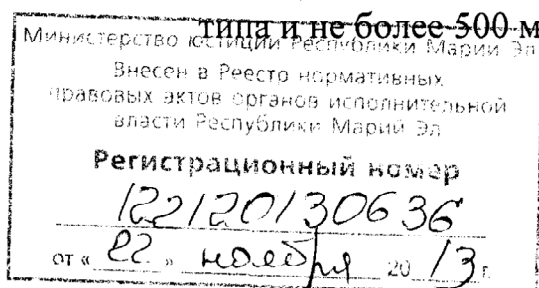 типа и не более 500 м
Министерство юстиции Республики Марий Эл
Внесен в Реестр нормативных
правовых актов органов исполнительной
власти Республики Марий Эл
Регистрационный номер
122120130636
от « 22 » ноября 20 13 г.